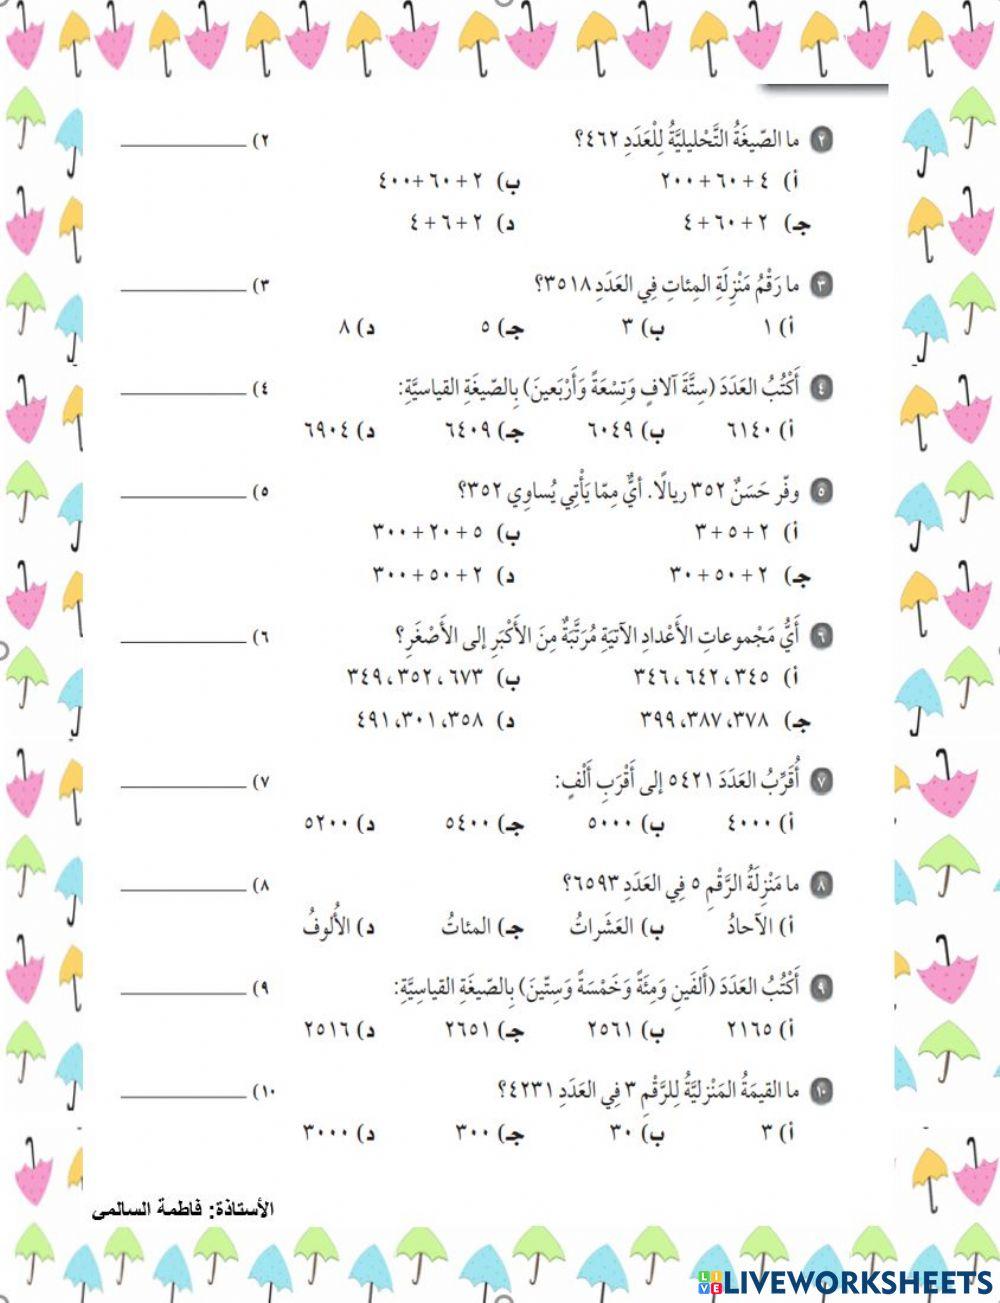 ٢ ما الصّيغَةُ التَّحْليليَّةُ لِلْعَدَدِ ٤٦٢؟ ٢) ________
أ) ٤ + ٦٠ + ٢٠٠ ب) ٢ + ٦٠ + ٤٠٠
جـ) ٢ + ٦٠ + ٤ د) ٢ + ٦ + ٤
٣ ما رَقْمُ مَنْزِلَةِ المِئاتِ فِي العَدَدِ ٣٥١٨؟ ٣) ________
أ) ١ ب) ٣ جـ) ٥ د) ٨
٤ أَكْتُبُ العَدَدَ (سِتَّةَ آلافٍ وَتِسْعَةً وَأَرْبَعينَ) بِالصّيغَةِ القياسيَّةِ: ٤) ________
أ) ٦١٤٠ ب) ٦٠٤٩ جـ) ٦٤٠٩ د) ٦٩٠٤
٥ وفّر حَسَنٌ ٣٥٢ ريالًا. أيٌّ مِمّا يَأْتِي يُساوِي ٣٥٢؟ ٥) ________
أ) ٢ + ٥ + ٣ ب) ٥ + ٢٠ + ٣٠٠
جـ) ٢ + ٥٠ + ٣٠ د) ٢ + ٥٠ + ٣٠٠
٦ أَيُّ مَجْموعاتِ الأَعْدادِ الآتيَةِ مُرَتَّبَةٌ مِنَ الأَكْبَرِ إلى الأَصْغَرِ؟ ٦) ________
أ) ٣٤٥ ، ٦٤٢ ، ٣٤٦ ب) ٦٧٣ ، ٣٥٢ ، ٣٤٩
جـ) ٣٧٨، ٣٨٧، ٣٩٩ د) ٣٥٨، ٣٠١، ٤٩١
٧ أُقَرِّبُ العَدَدَ ٥٤٢١ إلى أَقْرَبِ أَلْفٍ: ٧) ________
أ) ٤٠٠٠ ب) ٥٠٠٠ جـ) ٥٤٠٠ د) ٥٢٠٠
٨ ما مَنْزِلَةُ الرَّقْمِ ٥ فِي العَدَدِ ٦٥٩٣؟ ٨) ________
أ) الآحادُ ب) العَشَراتُ جـ) المئاتُ د) الأُلوفُ
٩ أَكْتُبُ العَدَدَ (أَلفَينِ وَمِئَةً وَخَمْسَةً وَسِتّينَ) بِالصّيغَةِ القياسِيَّةِ: ٩) ________
أ) ٢١٦٥ ب) ٢٥٦١ جـ) ٢٦٥١ د) ٢٥١٦
١٠ ما القيمَةُ المَنْزليَّةُ لِلرَّقْمِ ٣ فِي العَدَدِ ٤٢٣١؟ ١٠) ________
أ) ٣ ب) ٣٠ جـ) ٣٠٠ د) ٣٠٠٠
الأستاذة: فاطمة السالمي
LIVE LIVEWORKSHEETS